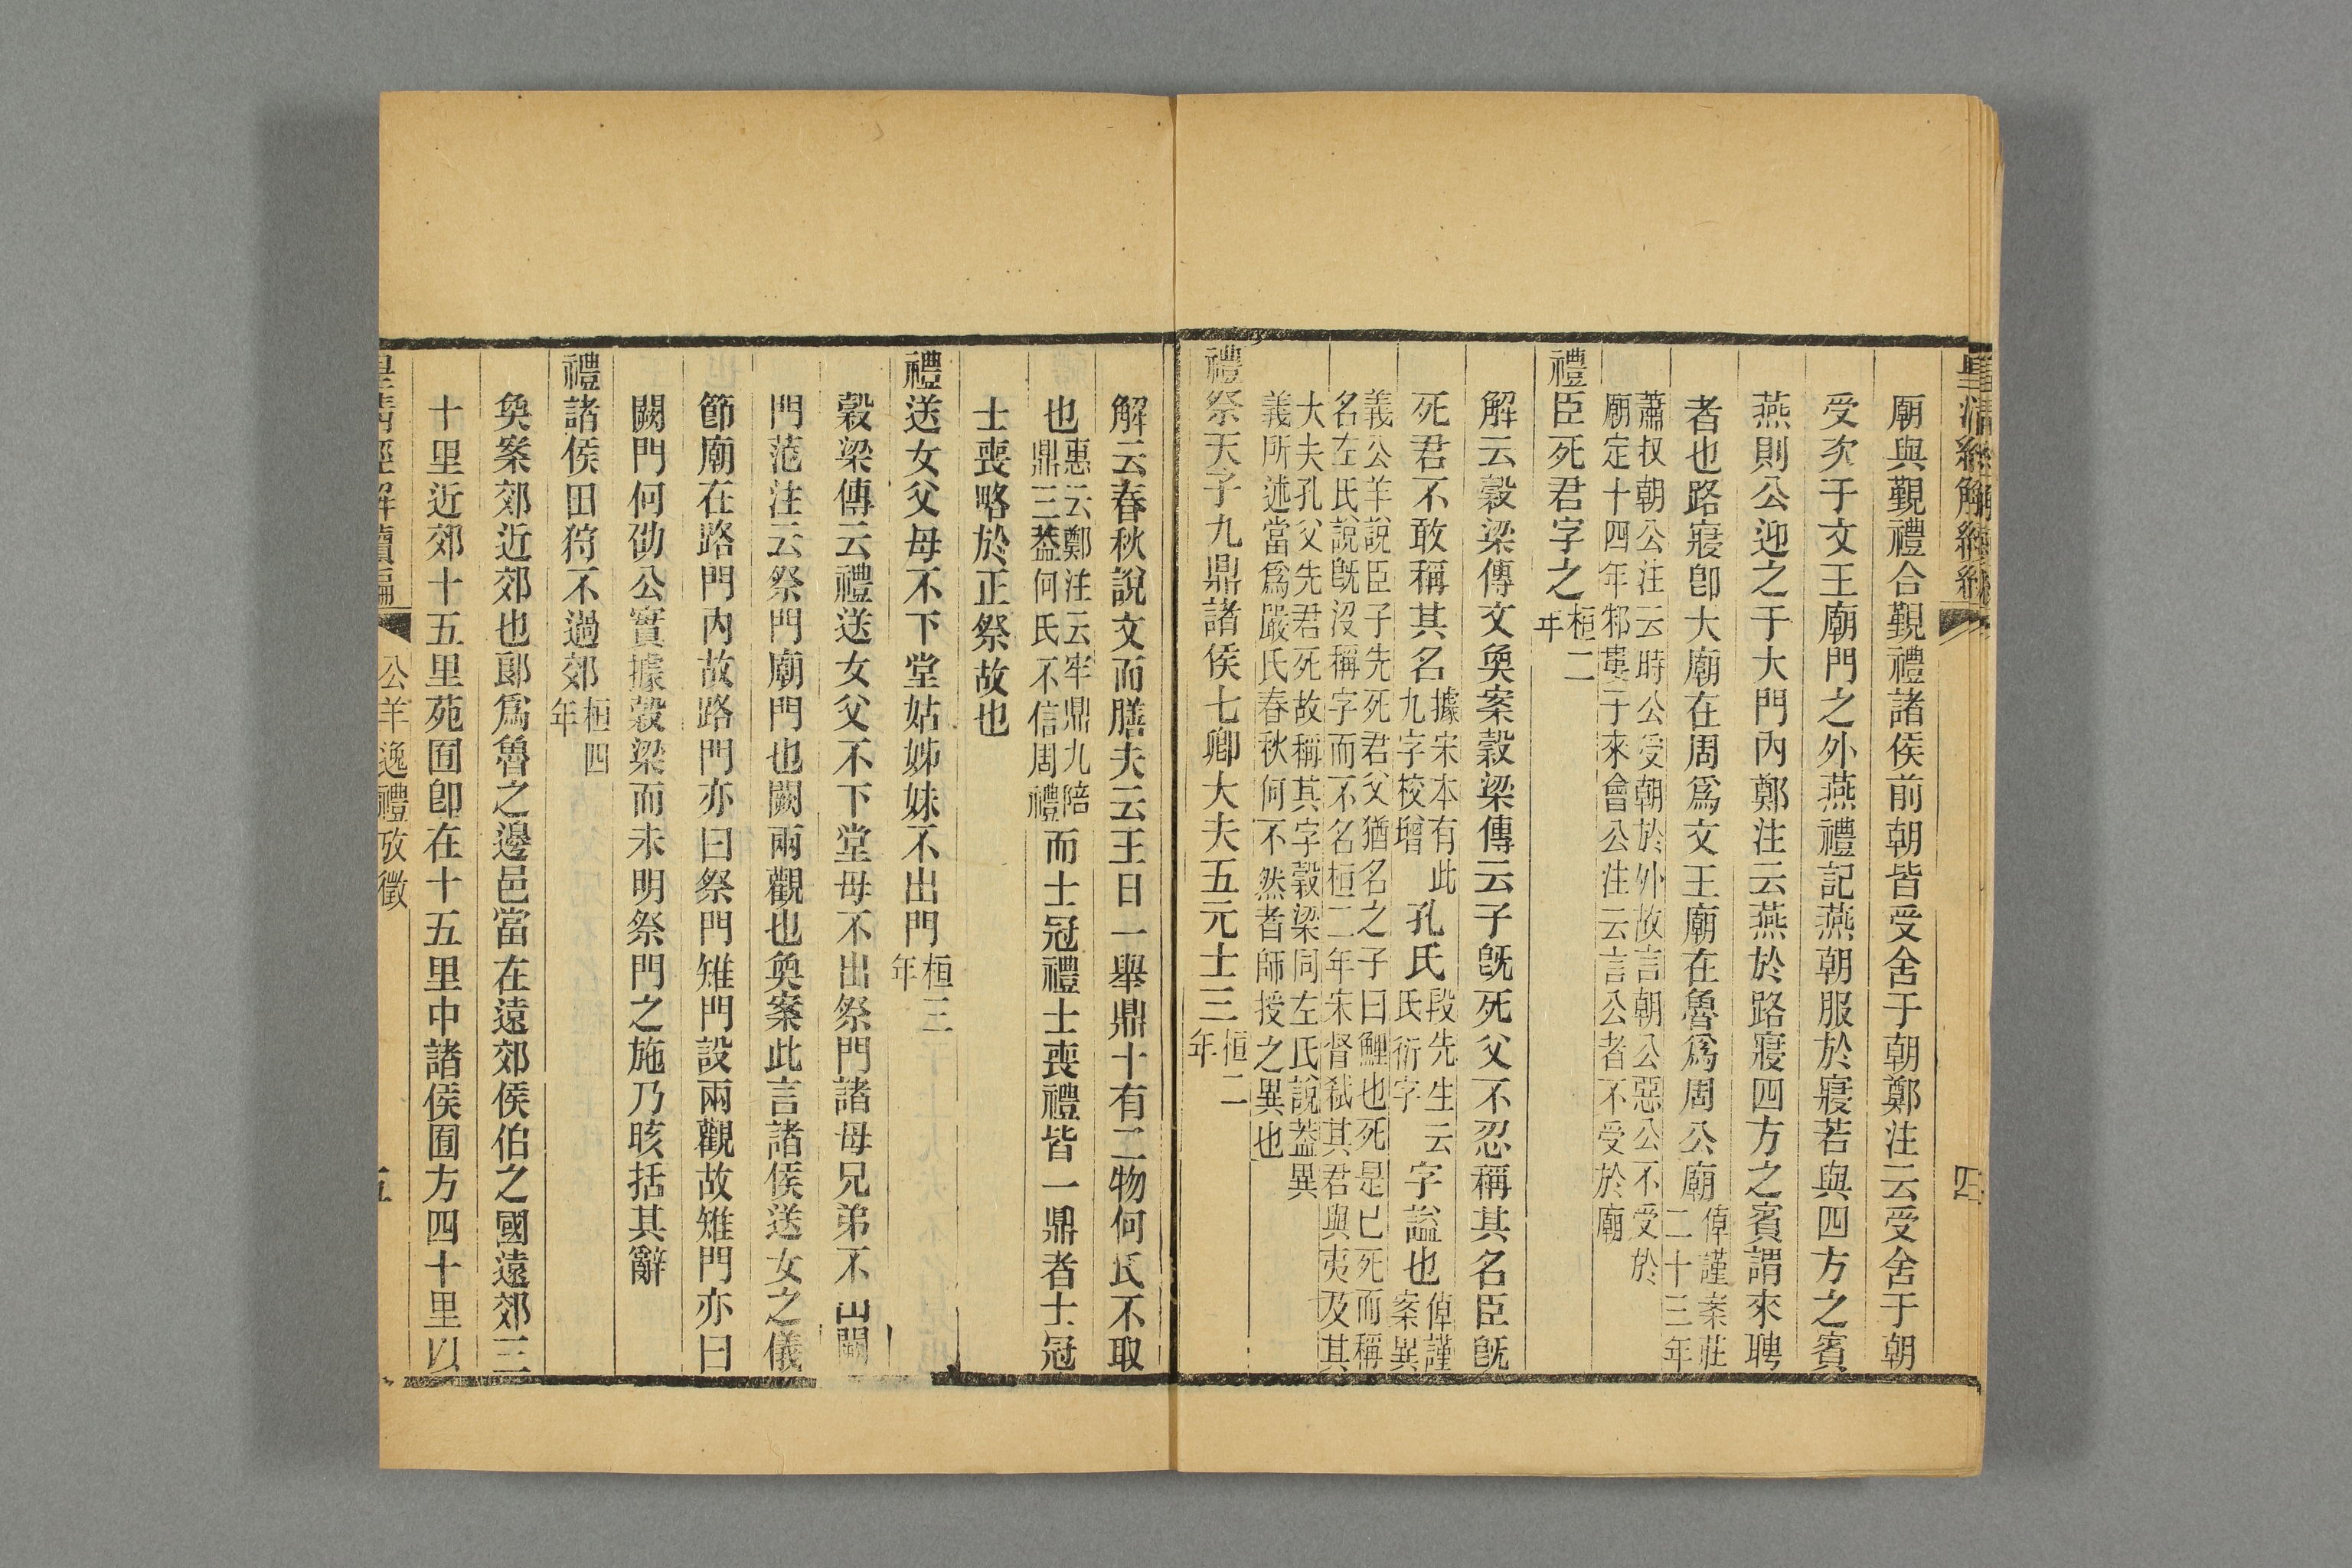 皇清經解續編
四
廟與覲禮合覲禮諸侯前朝皆受舍于朝鄭注云受舍于朝
受次于文王廟門之外燕禮記燕朝服於寢若與四方之賓
燕則公迎之于大門內鄭注云燕於路寢四方之賓謂來聘
者也路寢卽大廟在周爲文王廟在魯爲周公廟倬謹案莊二十三年
蕭叔朝公注云時公受朝於外故言朝公惡公不受於
廟定十四年邾婁子來會公注云言公者不受於廟
禮臣死君字之桓二年
解云穀梁傳文奐案穀梁傳云子旣死父不忍稱其名臣旣
死君不敢稱其名據宋本有此九字校增孔氏段先生云氏衍字字謚也倬謹案異
義公羊說臣子先死君父猶名之子曰鯉也死是已死而稱
名左氏說旣沒稱字而不名桓二年宋督弒其君與夷及其
大夫孔父先君死故稱其字穀梁同左氏說葢異
義所述當爲嚴氏春秋何不然者師授之異也
禮祭天子九鼎諸侯七卿大夫五元士三桓二年
解云春秋說文而膳夫云王日一舉鼎十有二物何氏不取
也惠云鄭注云牢鼎九陪鼎三葢何氏不信周禮而士冠禮士喪禮皆一鼎者士冠
士喪略於正祭故也
禮送女父母不下堂姑姊妹不出門桓三年
穀梁傳云禮送女父不下堂母不出祭門諸母兄弟不出闕
門范注云祭門廟門也闕兩觀也奐案此言諸侯送女之儀
節廟在路門內故路門亦曰祭門雉門設兩觀故雉門亦曰
闕門何劭公實據穀梁而未明祭門之施乃晐括其辭
禮諸侯田狩不過郊桓四年
奐案郊近郊也郎爲魯之邊邑當在遠郊侯伯之國遠郊三
十里近郊十五里苑囿卽在十五里中諸侯囿方四十里以
皇清經解續編
公羊逸禮攷徵
五